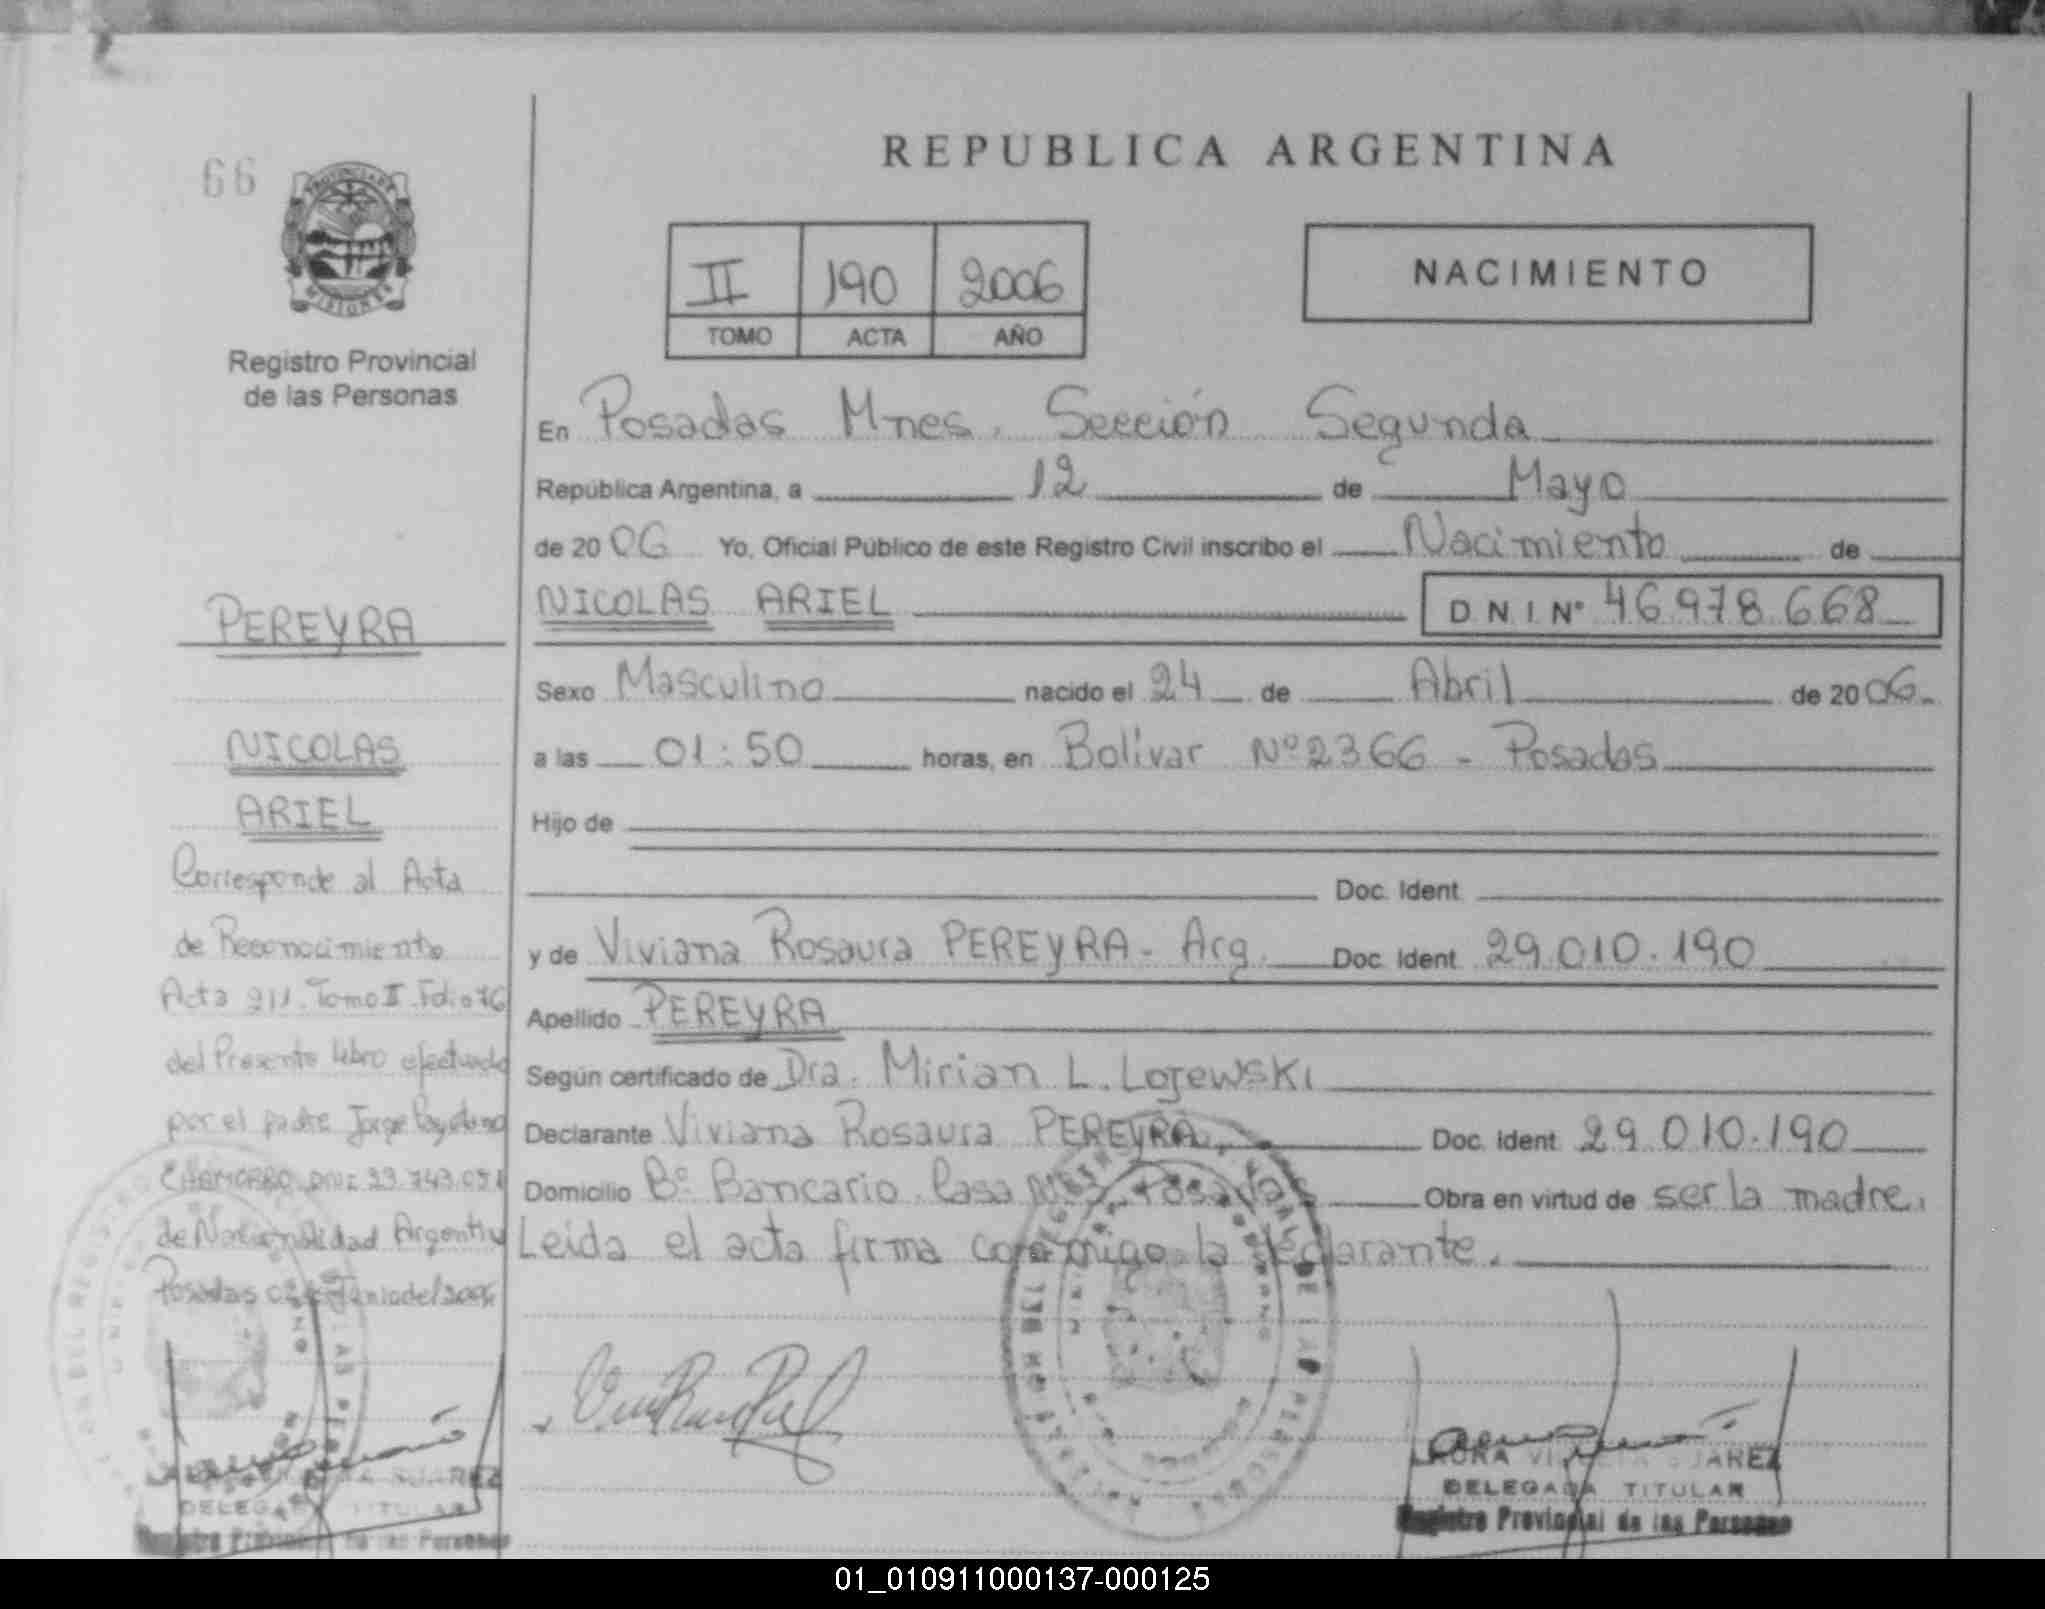 REPUBLICA ARGENTINA
66
MISIONES
Registro Provincial
de las Personas
II 190 2006
TOMO ACTA AÑO
NACIMIENTO
En Posadas Mnes. Sección Segunda
República Argentina, a 12 de Mayo
de 2006 Yo, Oficial Público de este Registro Civil inscribo el Nacimiento de
NICOLAS ARIEL D.N.I. Nº 46.978.668
Sexo Masculino nacido el 24 de Abril de 2006
a las 01:50 horas, en Bolivar Nº 2366 - Posadas
Hijo de
Doc. Ident.
y de Viviana Rosaura PEREYRA - Arg. Doc. Ident. 29.010.190
Apellido PEREYRA
Según certificado de Dra. Mirian L. Lojewski
Declarante Viviana Rosaura PEREYRA. Doc. Ident. 29.010.190
Domicilio Bº Bancario Casa Obra en virtud de ser la madre.
Leida el acta firma conmigo la declarante.
PEREYRA
NICOLAS
ARIEL
Corresponde al Acta
de Reconocimiento
Acta 211 Tomo II Folio 76
del Presente libro efectuado
por el padre Jorge
CHAMORRO DNI
de Nacionalidad Argentin
Posadas de Junio del 2006
SUAREZ
DELEGADA TITULAR
Registro Provincial de las Personas
LAURA SUAREZ
DELEGADA TITULAR
Registro Provincial de las Personas
01_010911000137-000125